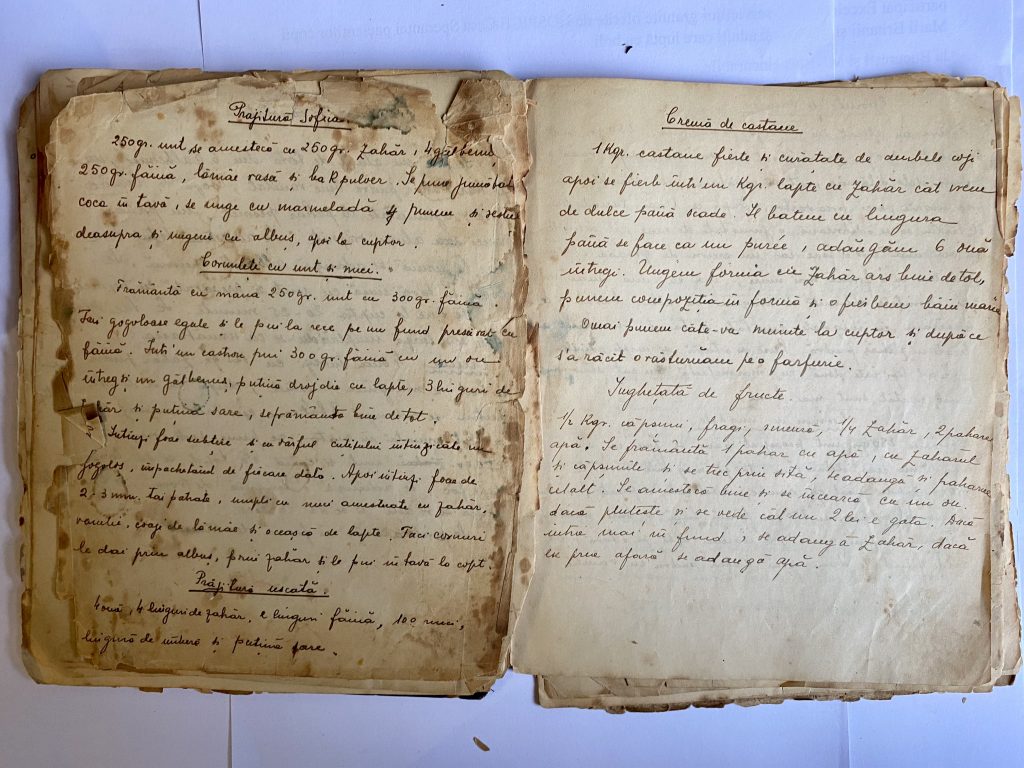 Prăjitură Sofia
250gr. unt se amestecă cu 250gr. zahăr, 4 gălbenu
250gr. făină, lămâe rasă și bakpulver. Se pune jumătat
coca în tavă, se unge cu marmeladă punem și restu
deasupra și ungem cu albuș, apoi la cuptor.
Cornulețe cu unt și nuci.
Frământă cu mâna 250gr. unt cu 300gr. făină.
Faci gogoloase egale și le pui la rece pe un fund presărat cu
făină. Într'un castron pui 300gr. făină cu un ou
întreg și un gălbenuș, puțină drojdie cu lapte, 3 linguri de
zahăr și puțină sare, se frământă bine de tot.
Întinzi foae subțire și cu vârful cuțitului întinzi câte un
gogoloș, împachetând de fiecare dată. Apoi întinzi foae de
2-3 mm. tai pătrate, umpli cu nuci amestecate cu zahăr,
vanilie, coajă de lămâe și o ceașcă de lapte. Faci cornuri
le dai prin albuș, prin zahăr și le pui în tavă la copt.
Prăjitură uscată.
4 ouă, 4 linguri de zahăr, linguri făină, 100 nuci,
lingură de untură și puțină sare.
Cremă de castane
1 Kgr. castane fierte și curățate de ambele coji
apoi se fierb într'un Kgr. lapte cu zahăr cât vrem
de dulce până scade. Il batem cu lingura
până se face ca un purée, adăugăm 6 ouă
întregi. Ungem forma cu zahăr ars bine de tot,
punem compoziția în formă și o fierbem bain marie
O mai punem câte-va minute la cuptor și după ce
s'a răcit o răsturnăm pe o farfurie.
Inghețată de fructe.
1/2 Kgr. căpșuni, fragi, smeură, 1/4 zahăr, 2 pahare
apă. Se frământă 1 pahar cu apă, cu zahărul
și căpșunile și se trec prin sită, se adaugă și paharul
celalt. Se amestecă bine și se încearcă cu un ou
dacă plutește și se vede cât un 2 lei e gata. Dacă
intră mai în fund, se adaugă zahăr, dacă
ese prea afară se adaugă apă.